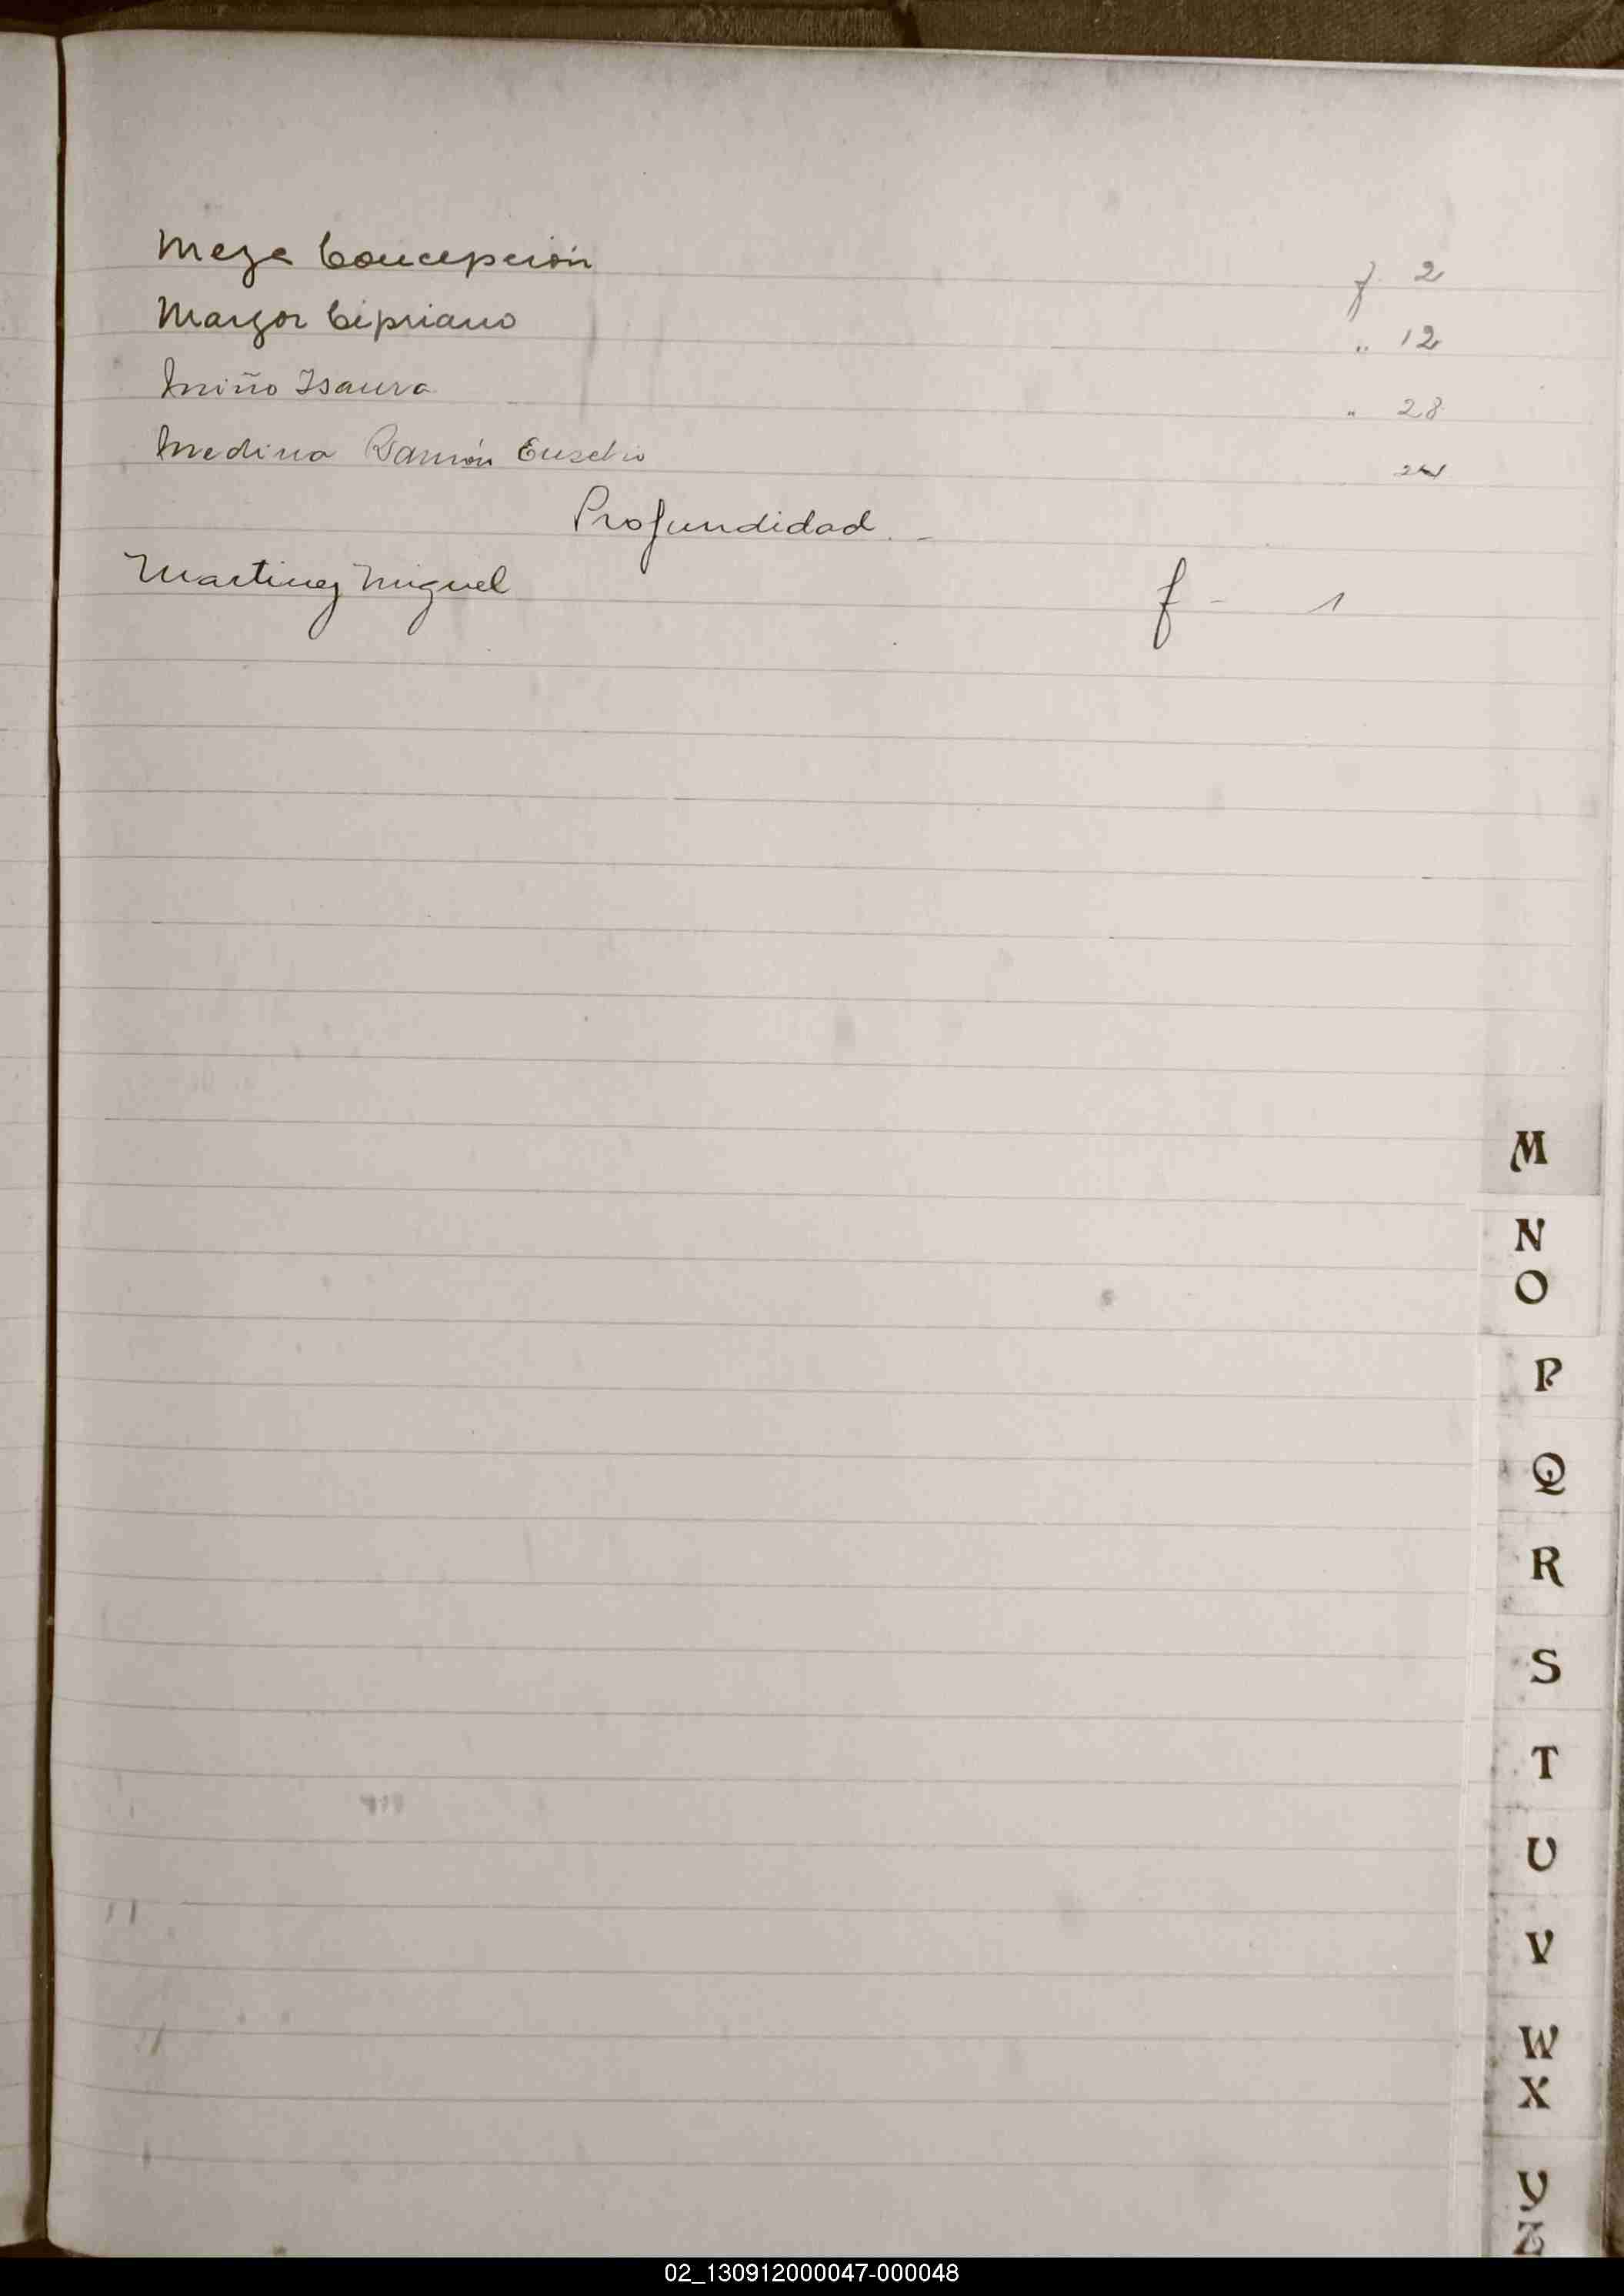 Meza Concepción f. 2
Marzor Cipriano " 12
Miño Isaura " 28
Medina Ramón Eusebio
Profundidad.-
Martinez Miguel f - 1
M
N
O
P
Q
R
S
T
U
V
W
X
Y
Z
02_130912000047-000048